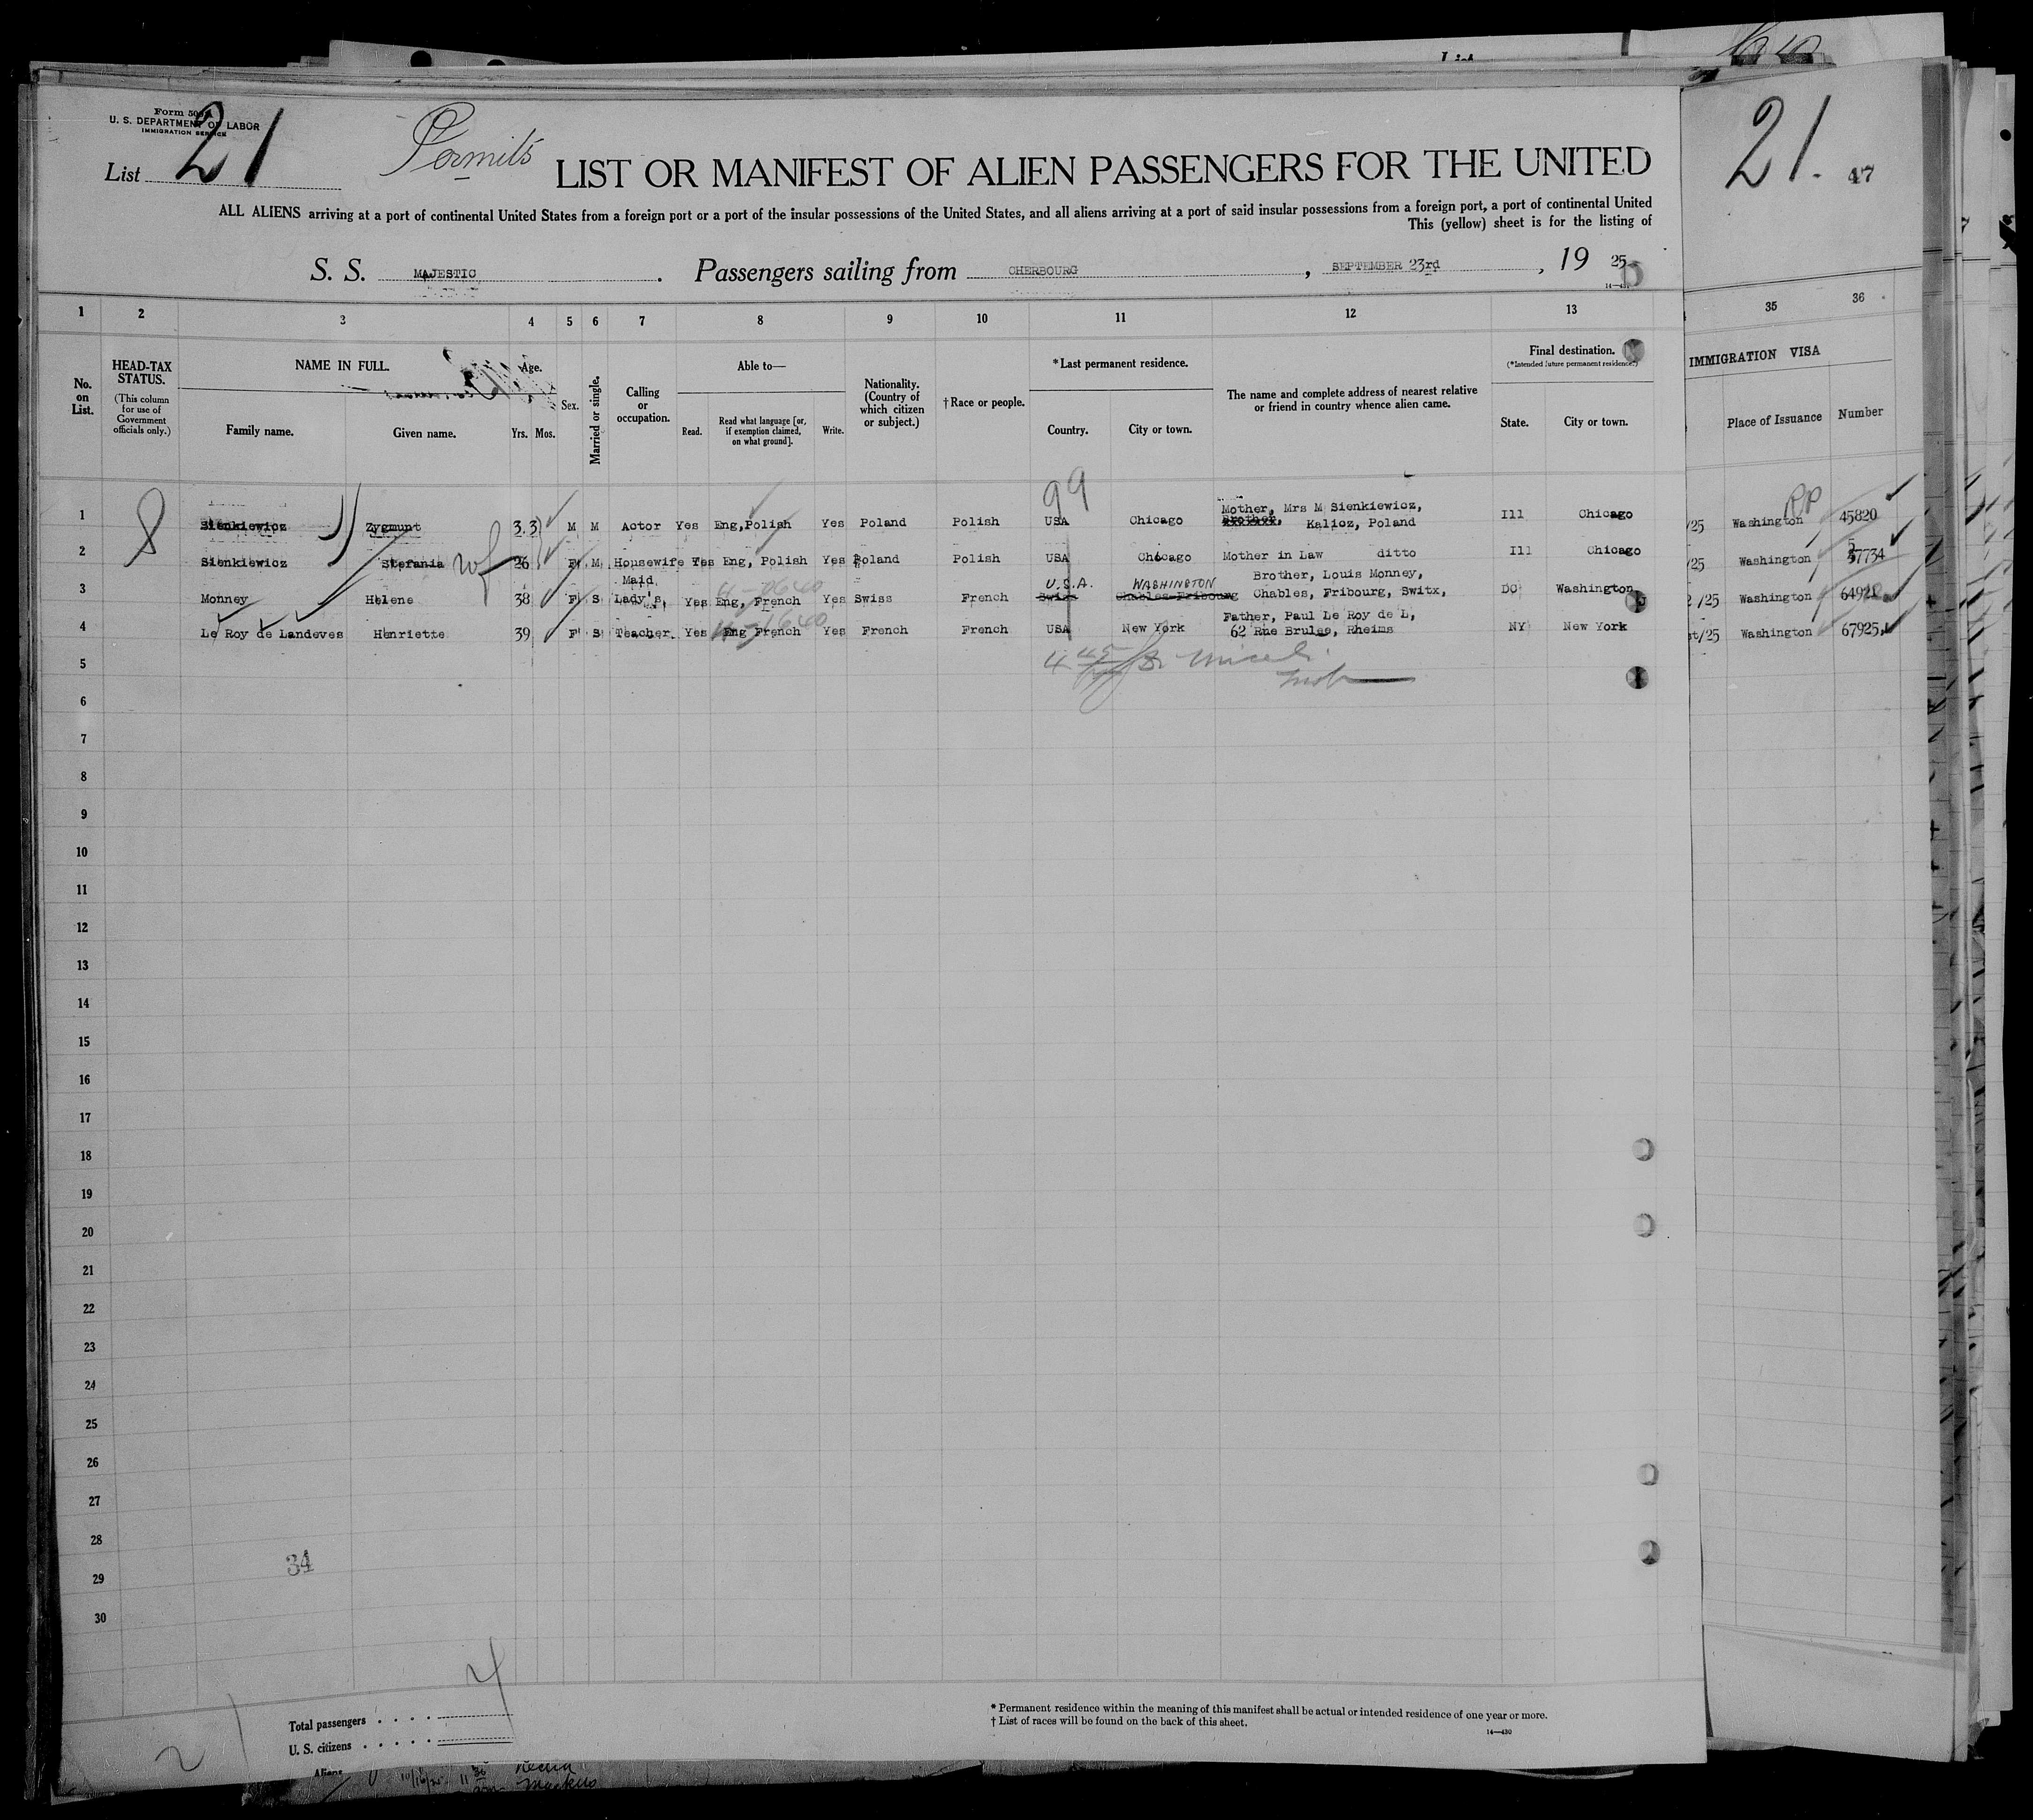 Form 500
U. S. DEPARTMENT OF LABOR
IMMIGRATION SERVICE
List 21
Permits
LIST OR MANIFEST OF ALIEN PASSENGERS FOR THE UNITED
21. 47
ALL ALIENS arriving at a port of continental United States from a foreign port or a port of the insular possessions of the United States, and all aliens arriving at a port of said insular possessions from a foreign port, a port of continental United
This (yellow) sheet is for the listing of
S. S. MAJESTIC. Passengers sailing from CHERBOURG, SEPTEMBER 23rd, 19 25
1 2 3 4 5 6 7 8 9 10 11 12 13 35 36
No. on List.
HEAD-TAX STATUS.
(This column for use of Government officials only.)
NAME IN FULL.
Family name. Given name.
Age.
Yrs. Mos.
Sex.
Married or single.
Calling or occupation.
Able to—
Read. Read what language [or, if exemption claimed, on what ground]. Write.
Nationality. (Country of which citizen or subject.)
†Race or people.
*Last permanent residence.
Country. City or town.
The name and complete address of nearest relative or friend in country whence alien came.
Final destination.
(*Intended future permanent residence.)
State. City or town.
IMMIGRATION VISA
Place of Issuance Number
99
1 Sienkiewicz Zygmunt 33 M M Actor Yes Eng,Polish Yes Poland Polish USA Chicago Mother, Mrs M Sienkiewicz, Brother, Kalicz, Poland Ill Chicago /25 Washington 45820
2 Sienkiewicz Stefania wf 26 F M Housewife Yes Eng, Polish Yes Poland Polish USA Chicago Mother in Law ditto Ill Chicago /25 Washington 57734
3 Monney Helene 38 F S Maid Lady's, Yes Eng, French Yes Swiss French U.S.A. Swiss WASHINGTON Chables Fribourg Brother, Louis Monney, Chables, Fribourg, Switx, DC Washington /25 Washington 64921
4 Le Roy de Landeves Henriette 39 F S Teacher. Yes Eng French Yes French French USA New York Father, Paul Le Roy de L, 62 Rue Brulee, Rheims NY New York st/25 Washington 67925
5
6
7
8
9
10
11
12
13
14
15
16
17
18
19
20
21
22
23
24
25
26
27
28
34
29
30
4
Total passengers . . . .
U. S. citizens . . . . .
Aliens
21
* Permanent residence within the meaning of this manifest shall be actual or intended residence of one year or more.
† List of races will be found on the back of this sheet.
14—430